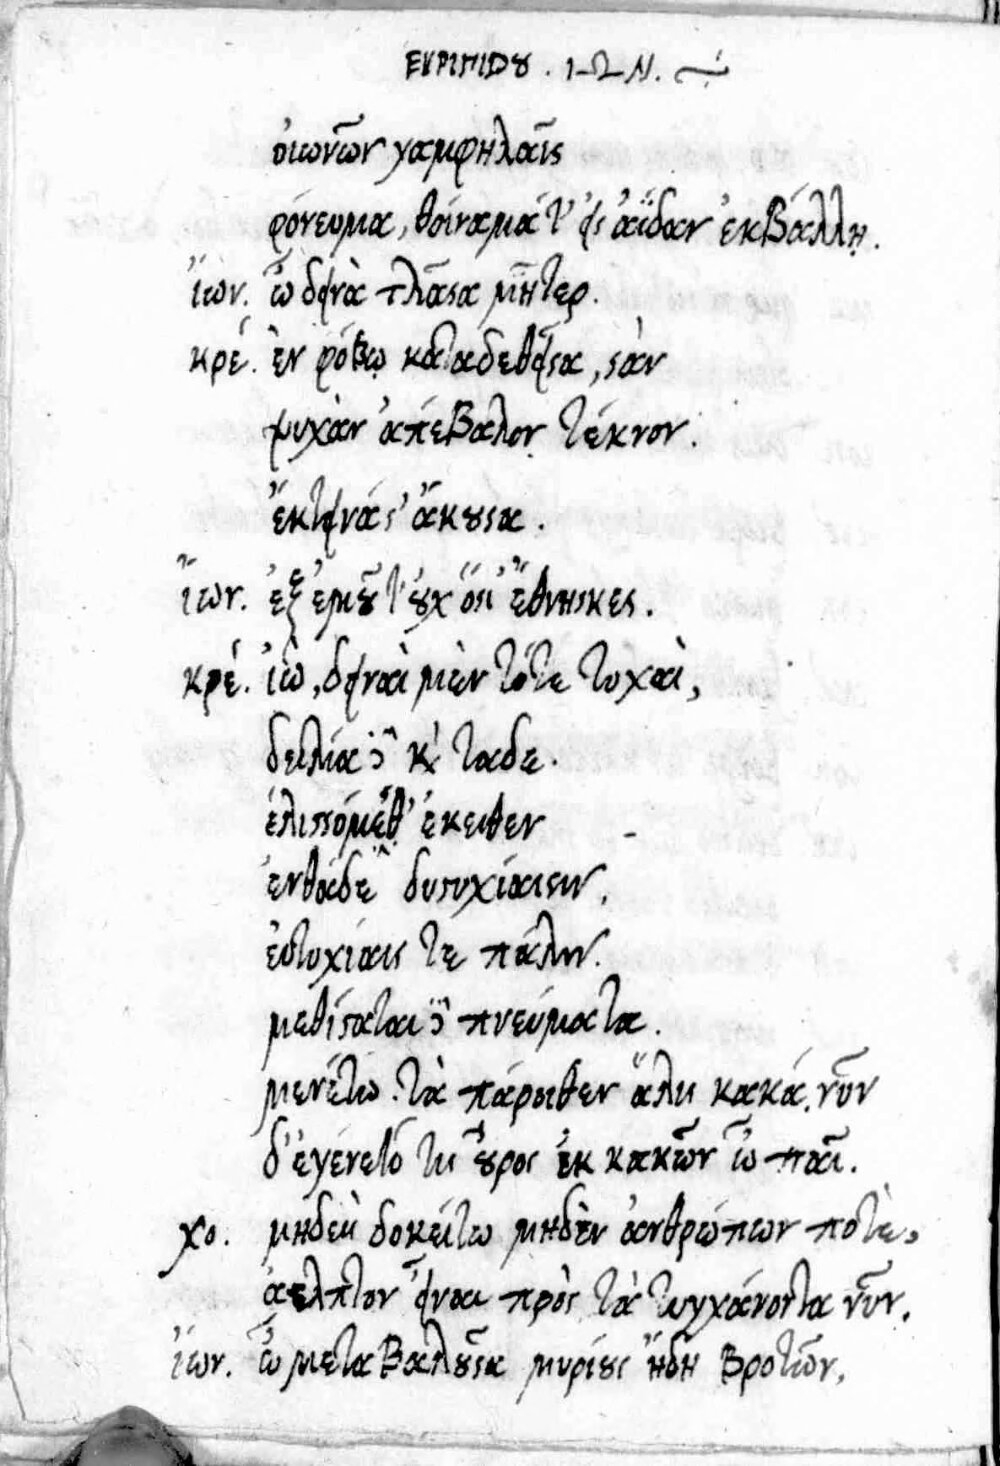 ΕΥΡΙΠΙΔου . ΙΩΝ.
οἰωνῶν γαμφηλαῖς
φόνευμα, θοίναμά τ' εἰς ἀΐδαν ἐκβάλλη.
ἴων. ὦ δεινὰ τλᾶσα μῆτερ.
κρέ. ἐν φόβω καταδεθεῖσα, σὰν
ψυχὰν ἀπέβαλον τέκνον.
ἔκτεινά σ' ἄκουσα.
ἴων. ἐξ ἐμοῦ τ' οὐχ ὅσι' ἔθνησκες.
κρέ. ἰὼ, δειναὶ μὲν τότε τύχαι,
δειλία δὲ καὶ τάδε.
ἑλισσόμεθ' ἐκεῖθεν
ἐνθάδε δυστυχίαισιν,
εὐτυχίαις τε πάλιν.
μεθίσταται δὲ πνεύματα.
μενέτω. τὰ πάροιθεν ἅλις κακά. νῦν
δ' ἐγένετό τις οὖρος ἐκ κακῶν ὦ παῖ.
χο. μηδεὶς δοκείτω μηδὲν ἀνθρώπων ποτὲ,
ἄελπτον εἶναι πρὸς τὰ τυγχάνοντα νῦν.
ἴων. ὦ μεταβαλοῦσα μυρίους ἤδη βροτῶν,